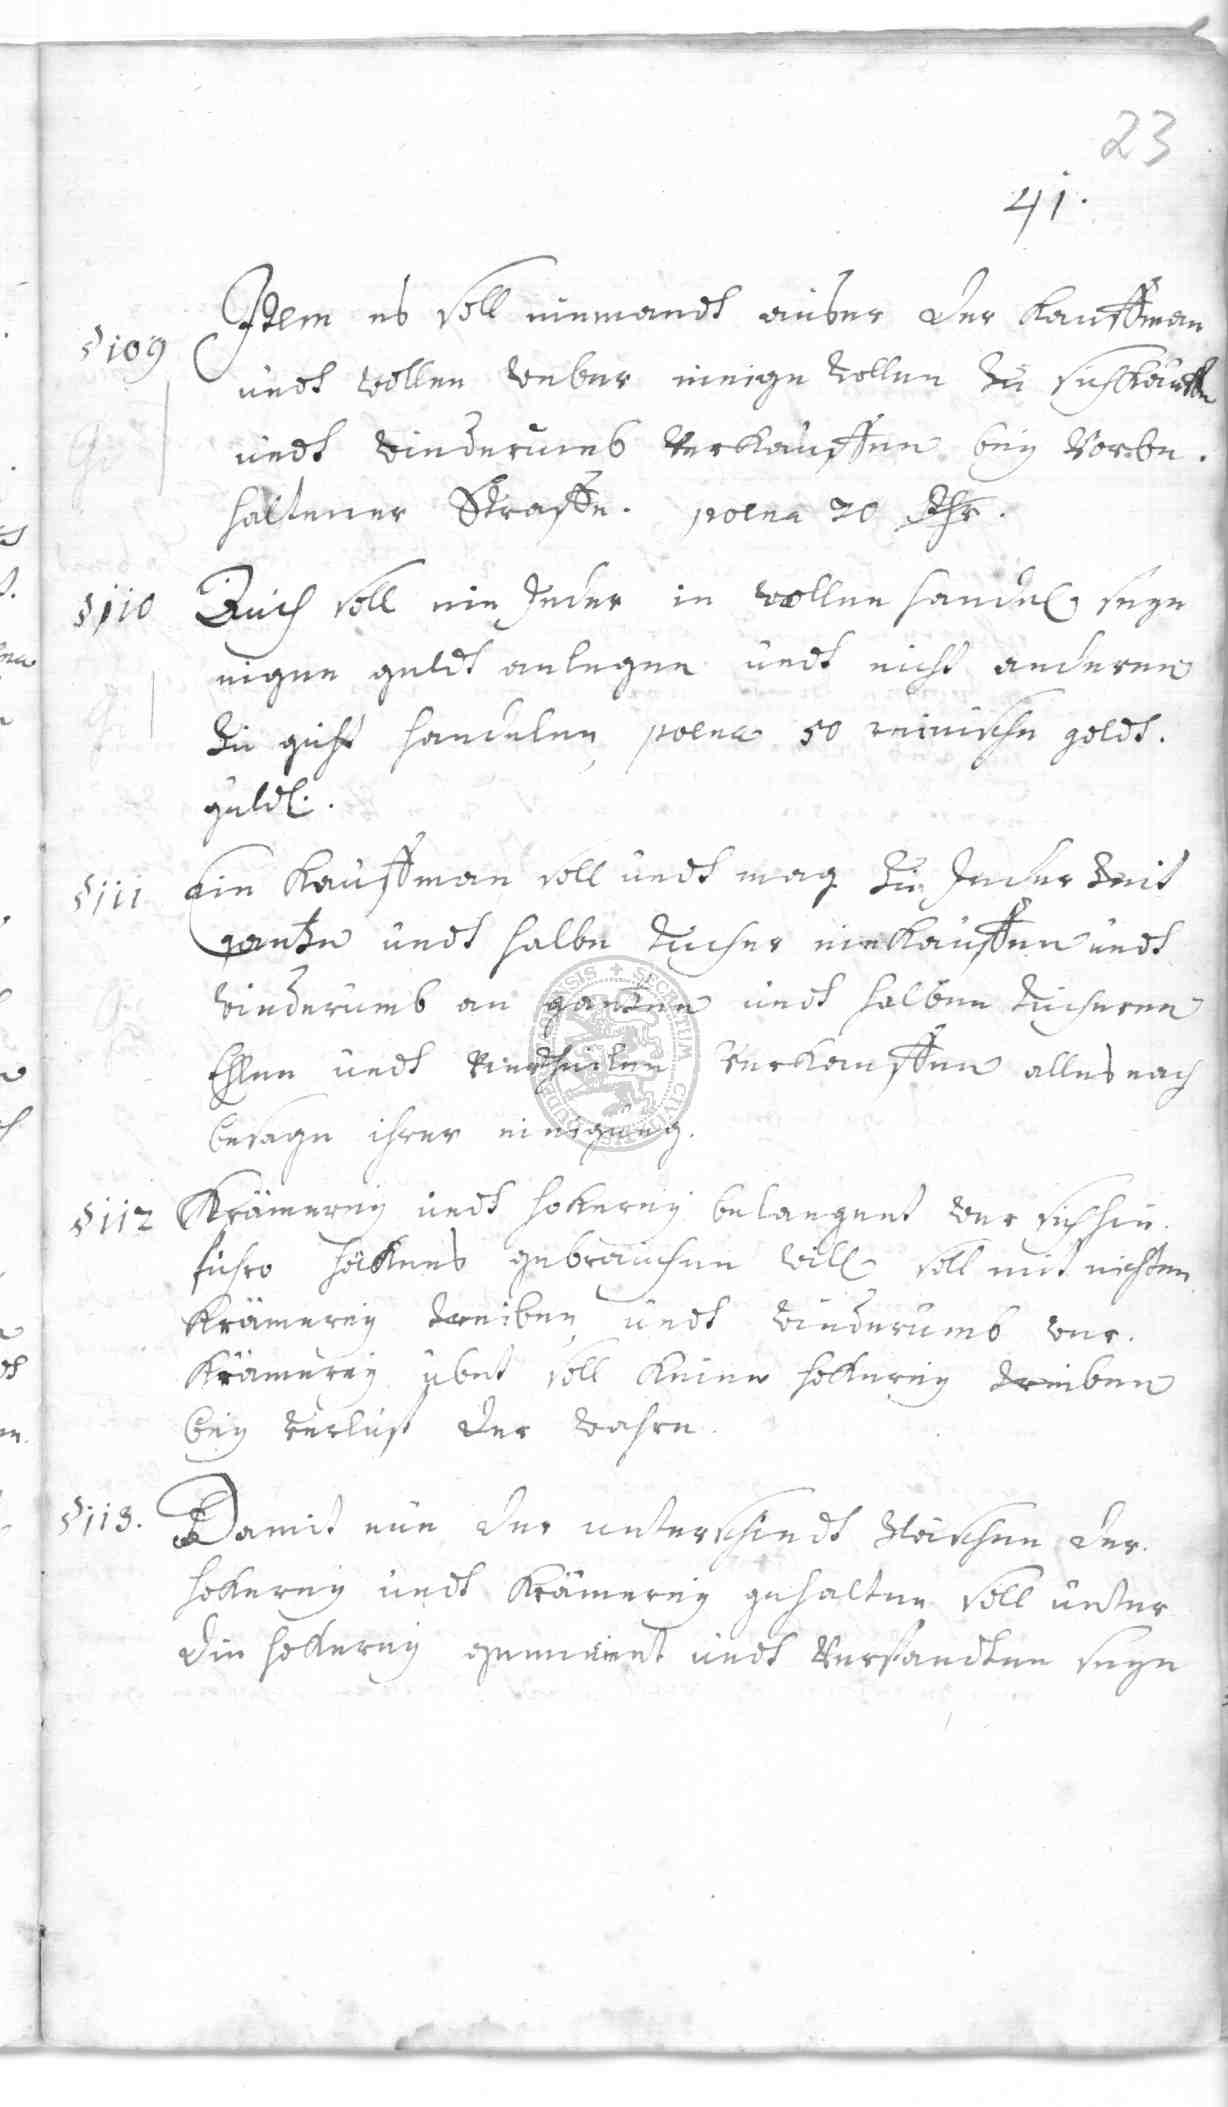 23
41.
§109 Item es soll niemandt ausser der Kauffman
undt wollen weber einige wollen zu sich kauffen
undt wiederumb verkauffen bey vorbe-
haltener Straffe. poena 20 Thr.
§110 Auch soll ein Jeder in wollen handel seyn
eigen geldt anlegen undt nicht anderen
zu gift handelen, poena 50 reinische goldt.
guld.
§111 Ein Kauffman soll undt mag zu Jeder Zeit
gantze undt halbe tucher einkauffen undt
wiederumb an gantzen undt halben tucheren
Ehlen undt Viertheilen verkauffen alles nach
besage ihrer einigung.
SECRETUM CIVI
§112 Krämerey undt hokerey belangent wer sich hin-
führo hökens gebrauchen will soll mit nichten
Krämerey treiben, undt wiederumb wer
Krämerey übet soll keine hokerey treiben
bey verlust der wahre.
§113. Damit nun der unterschiedt zwischen der
hokerey undt Krämerey gehalten soll unter
die hokerey gemeint undt verstandten seyn